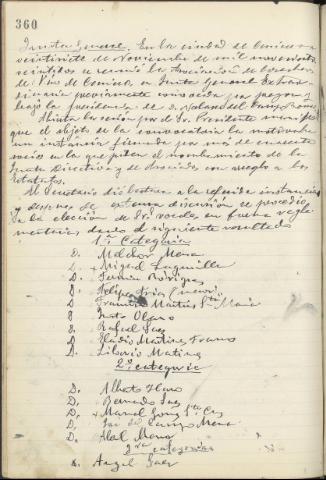 360
Junta General, En la ciudad de Cenicero a
veintisiete de Noviembre de mil novecientos
veintidos se reunió la Asociación de Cosecheros
de Vino de Cenicero, en Junta General Extraor-
dinaria previamente convocada por pregon y
bajo la presidencia de D.
Abierta la sesión por el Sr. Presidente manifestó
que el objeto de la convocatoria la motivaba
una instancia firmada por más de cincuenta
socios en la que piden el nombramiento de la
Junta Directiva y de asociados con arreglo a los
Estatutos.
El Secretario dió lectura a la referida instancia
y despues de extensa discusión se procedió
a la elección de Sres vocales en forma regla-
mentaria dando el siguiente resultado
1ª Categoria
D. Melchor Mena
D. Miguel
D. Fermin Rodriguez
D. Felipe Frias
D. Francisco Martinez Sta Maria
D. Justo Olano
D. Rafael Saez
D. Eladio Martinez
D. Liborio Martinez
2ª categoria
D. Alberto
D. Bernardo Saez
D. Manuel
D. del Campo Mena
D. Mena
3ra categoria
D. Angel Saez